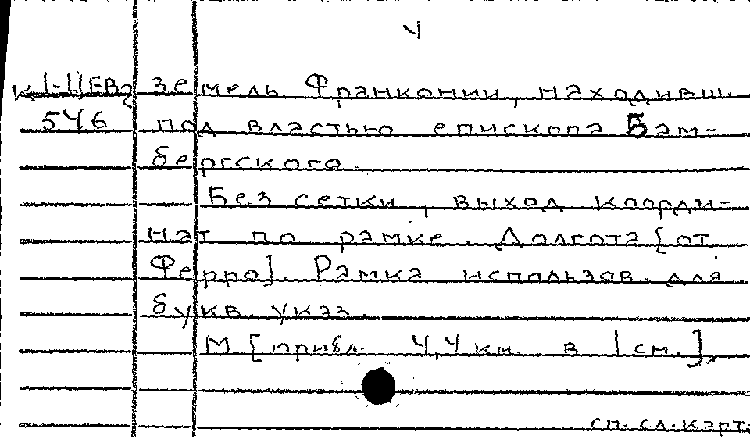 4
К 1-11 ЕВр земель Франконии, находивш.
546 под властью епископа Бам-
бергского.
Без сетки, выход коорди-
нат по рамке. Долгота [от
Ферро]. Рамка использов. для
букв. указ.
М [прибл. 4,4 км в 1 см.].
см. сл. карт.